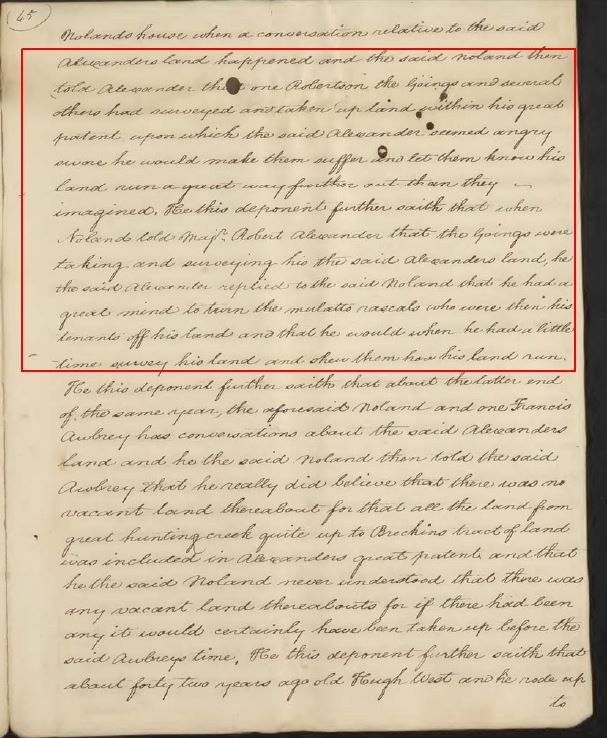 (45)
Nolands house when a conversation relative to the said
Alexanders land happened and the said Noland then
told Alexander that one Robertson the Goings and several
others had surveyed and taken up land within his great
patent upon which the said Alexander seemed angry
swore he would make them suffer and let them know his
land run a great way further out than they
imagined. He this deponent further saith that when
Noland told Majr. Robert Alexander that the Goings were
taking and surveying his the said Alexanders land, he
the said Alexander replied to the said Noland that he had a
great mind to turn the mulatto rascals who were then his
tenants off his land and that he would when he had a little
time survey his land and shew them how his land run.
He this deponent further saith that about the latter end
of the same year, the aforesaid Noland and one Francis
Aubrey has conversations about the said Alexanders
land and he the said Noland then told the said
Awbrey that he really did believe that there was no
vacant land thereabout for that all the land from
great hunting creek quite up to Breckins tract of land
was included in Alexanders great patent and that
he the said Noland never understood that there was
any vacant land thereabouts for if there had been
any it would certainly have been taken up before the
said Awbreys time. He this deponent further saith that
about forty two years ago old Hugh West and he rode up
to